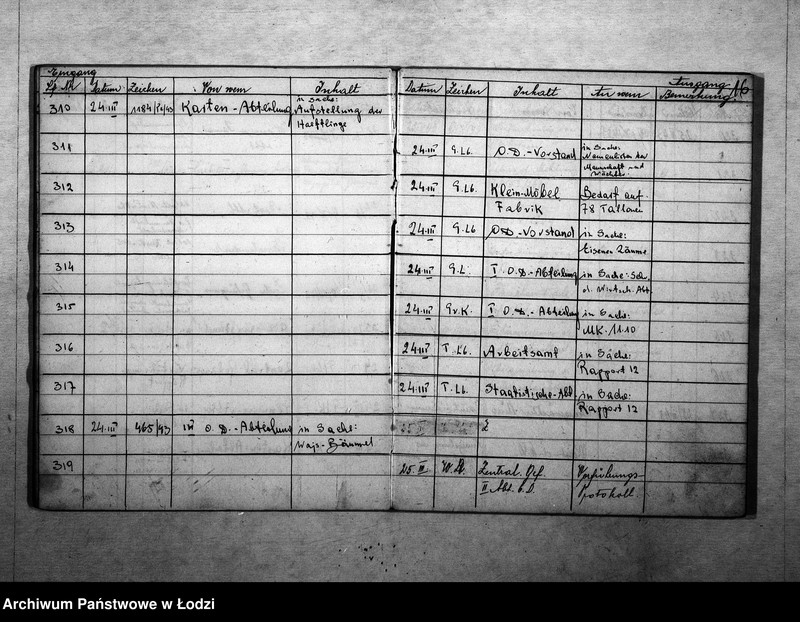 Eingang
Lf. Nr. Datum Zeichen Von wem Inhalt Datum Zeichen Inhalt An wem Ausgang Bemerkung 16
310 24.III 1184/ /43 Karten-Abteilung in Sache:
Aufstellung der
Haeftlinge
311 24.III G.Lb. O.D.-Vorstand in Sache:
Namenlisten der
Mannschaft und
Wächter
312 24.III G.Lb. Klein-Möbel Bedarf auf
Fabrik 78
313 24.III G.Lb O.D-Vorstand in Sache:
314 24.III G.L. I. O.D.-Abteilung in Sache:
d. Wirtsch. Abt.
315 24.III G.v.K. I O.D.-Abteilung in Sache:
MK. 11.10
316 24.III T.Lb. Arbeitsamt in Sache:
Rapport 12
317 24.III T.Lb. Statistische-Abt. in Sache:
Rapport 12
318 24.III 465/43 III O.D.-Abteilung in Sache: 25.III
319 25.III Zentral. Gef.
II Abt.
Protokoll
Archiwum Państwowe w Łodzi